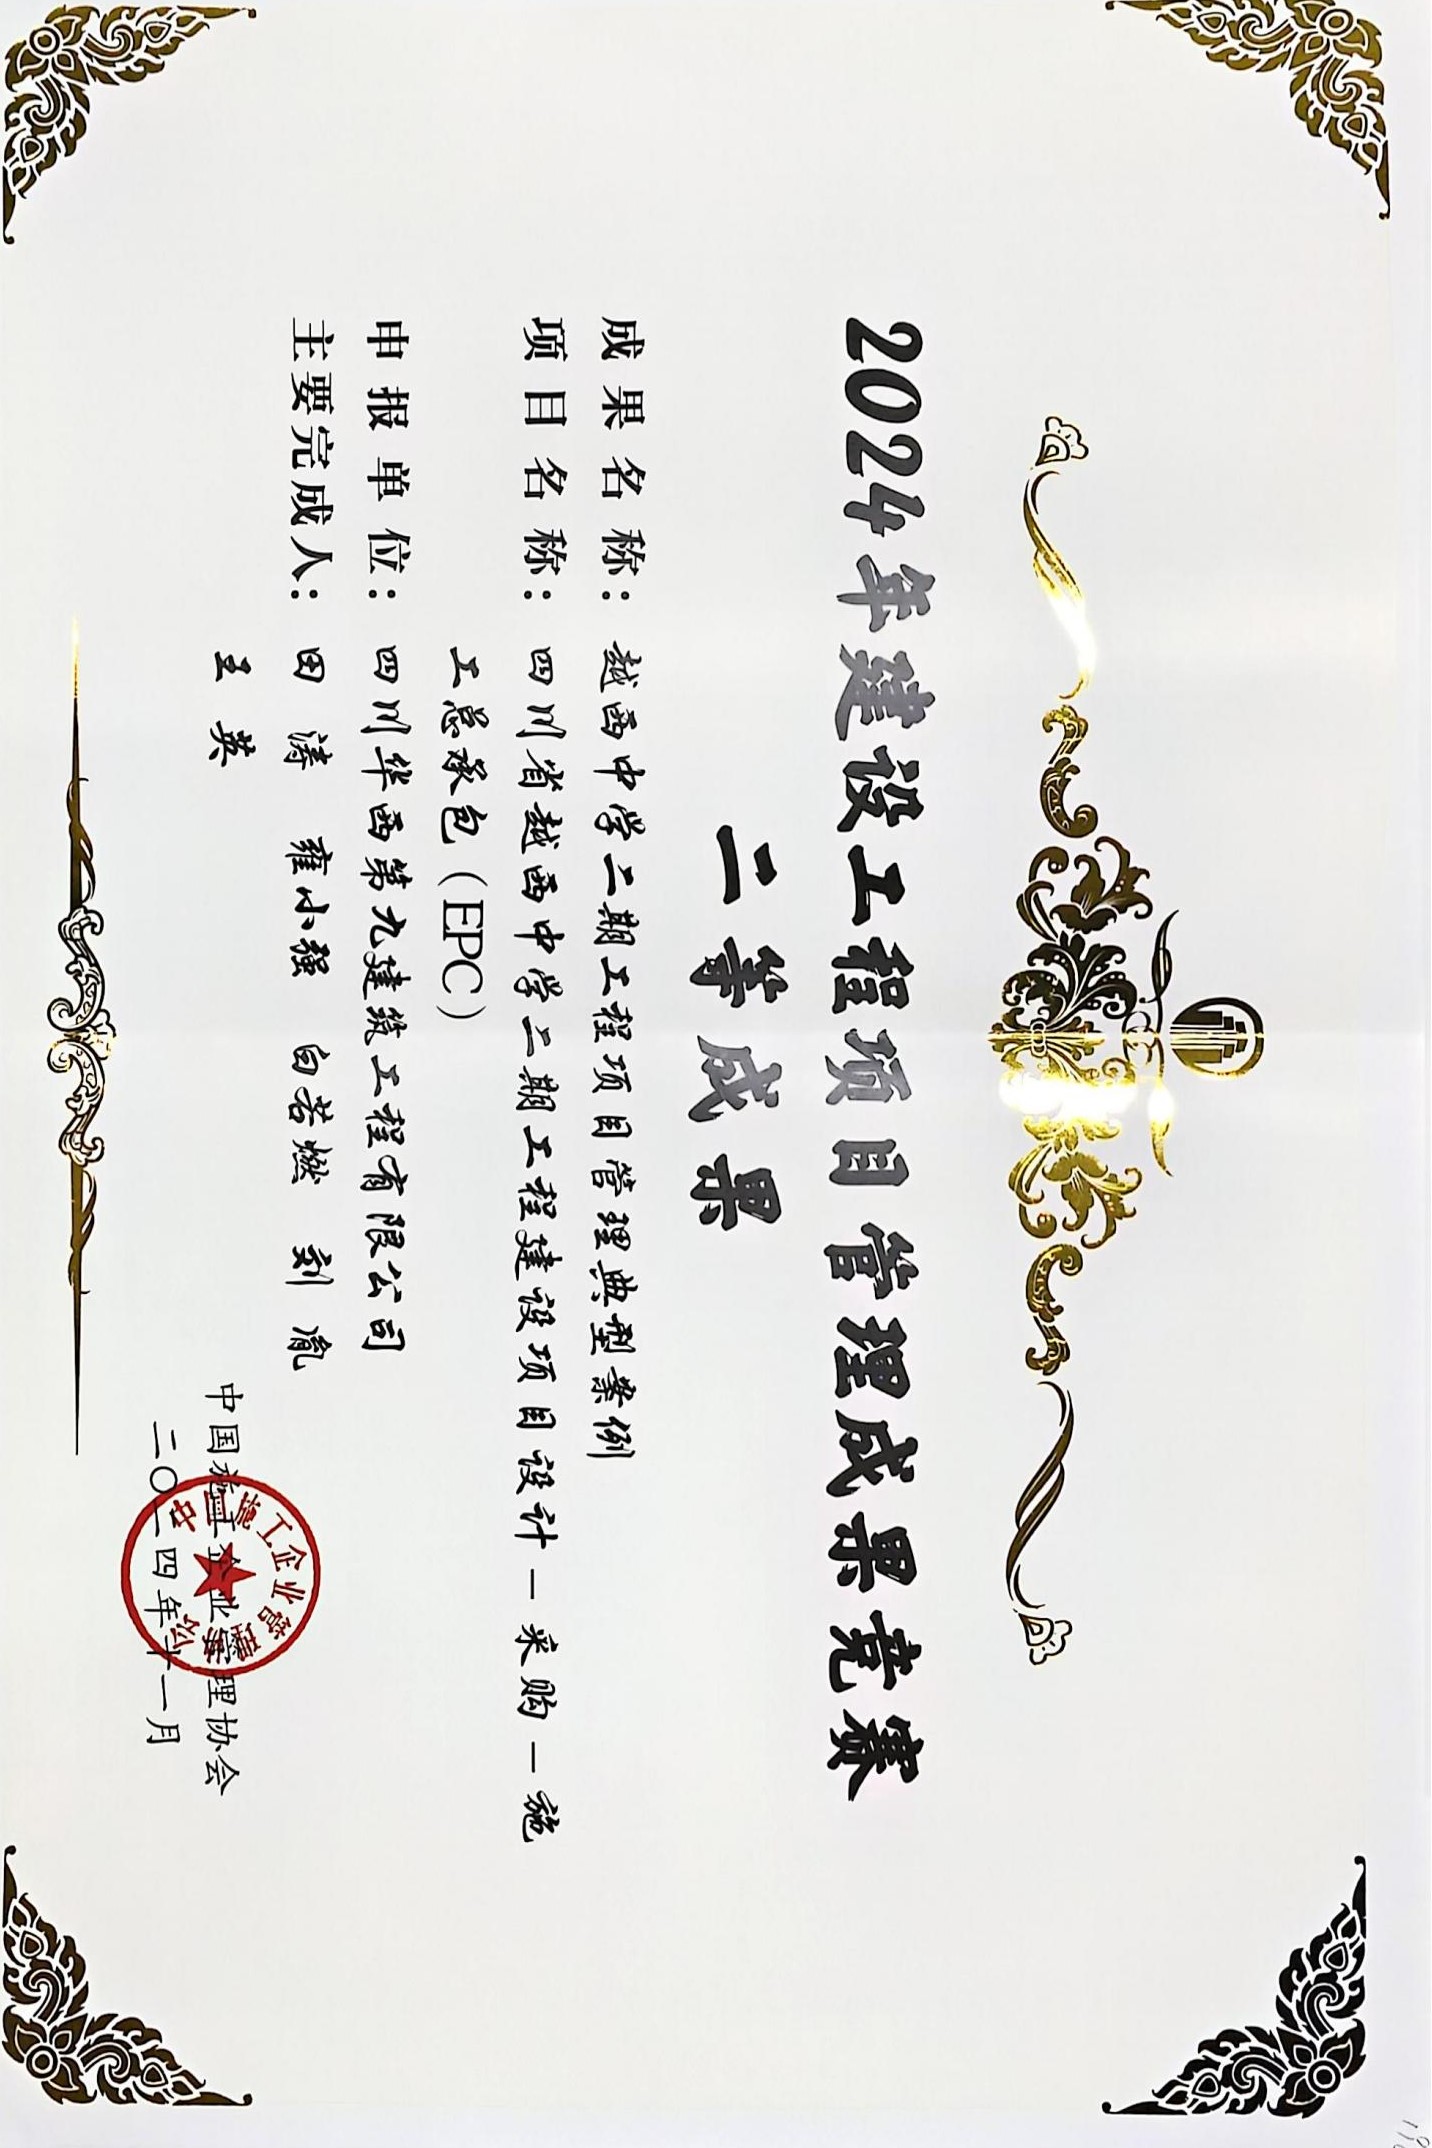 2024年建设工程项目管理成果竞赛
二等成果
成果名称：越西中学二期工程项目管理典型案例
项目名称：四川省越西中学二期工程建设项目设计—采购—施
工总承包（EPC）
申报单位：四川华西第九建筑工程有限公司
主要完成人：田 涛 雍小强 白若燃 刘 胤
王 英
中国施工企业管理协会
二〇二四年十一月